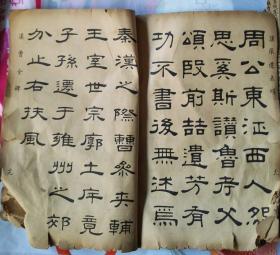 漢張遷碑
周公東征西人怨
思奚斯讚魯考父
頌殷前喆遺芳有
功不書後無述焉
秦漢之際曹參夾輔
王室世宗廓土斥竟
子孫遷于雍州之郊
分止右扶風
漢曹全碑